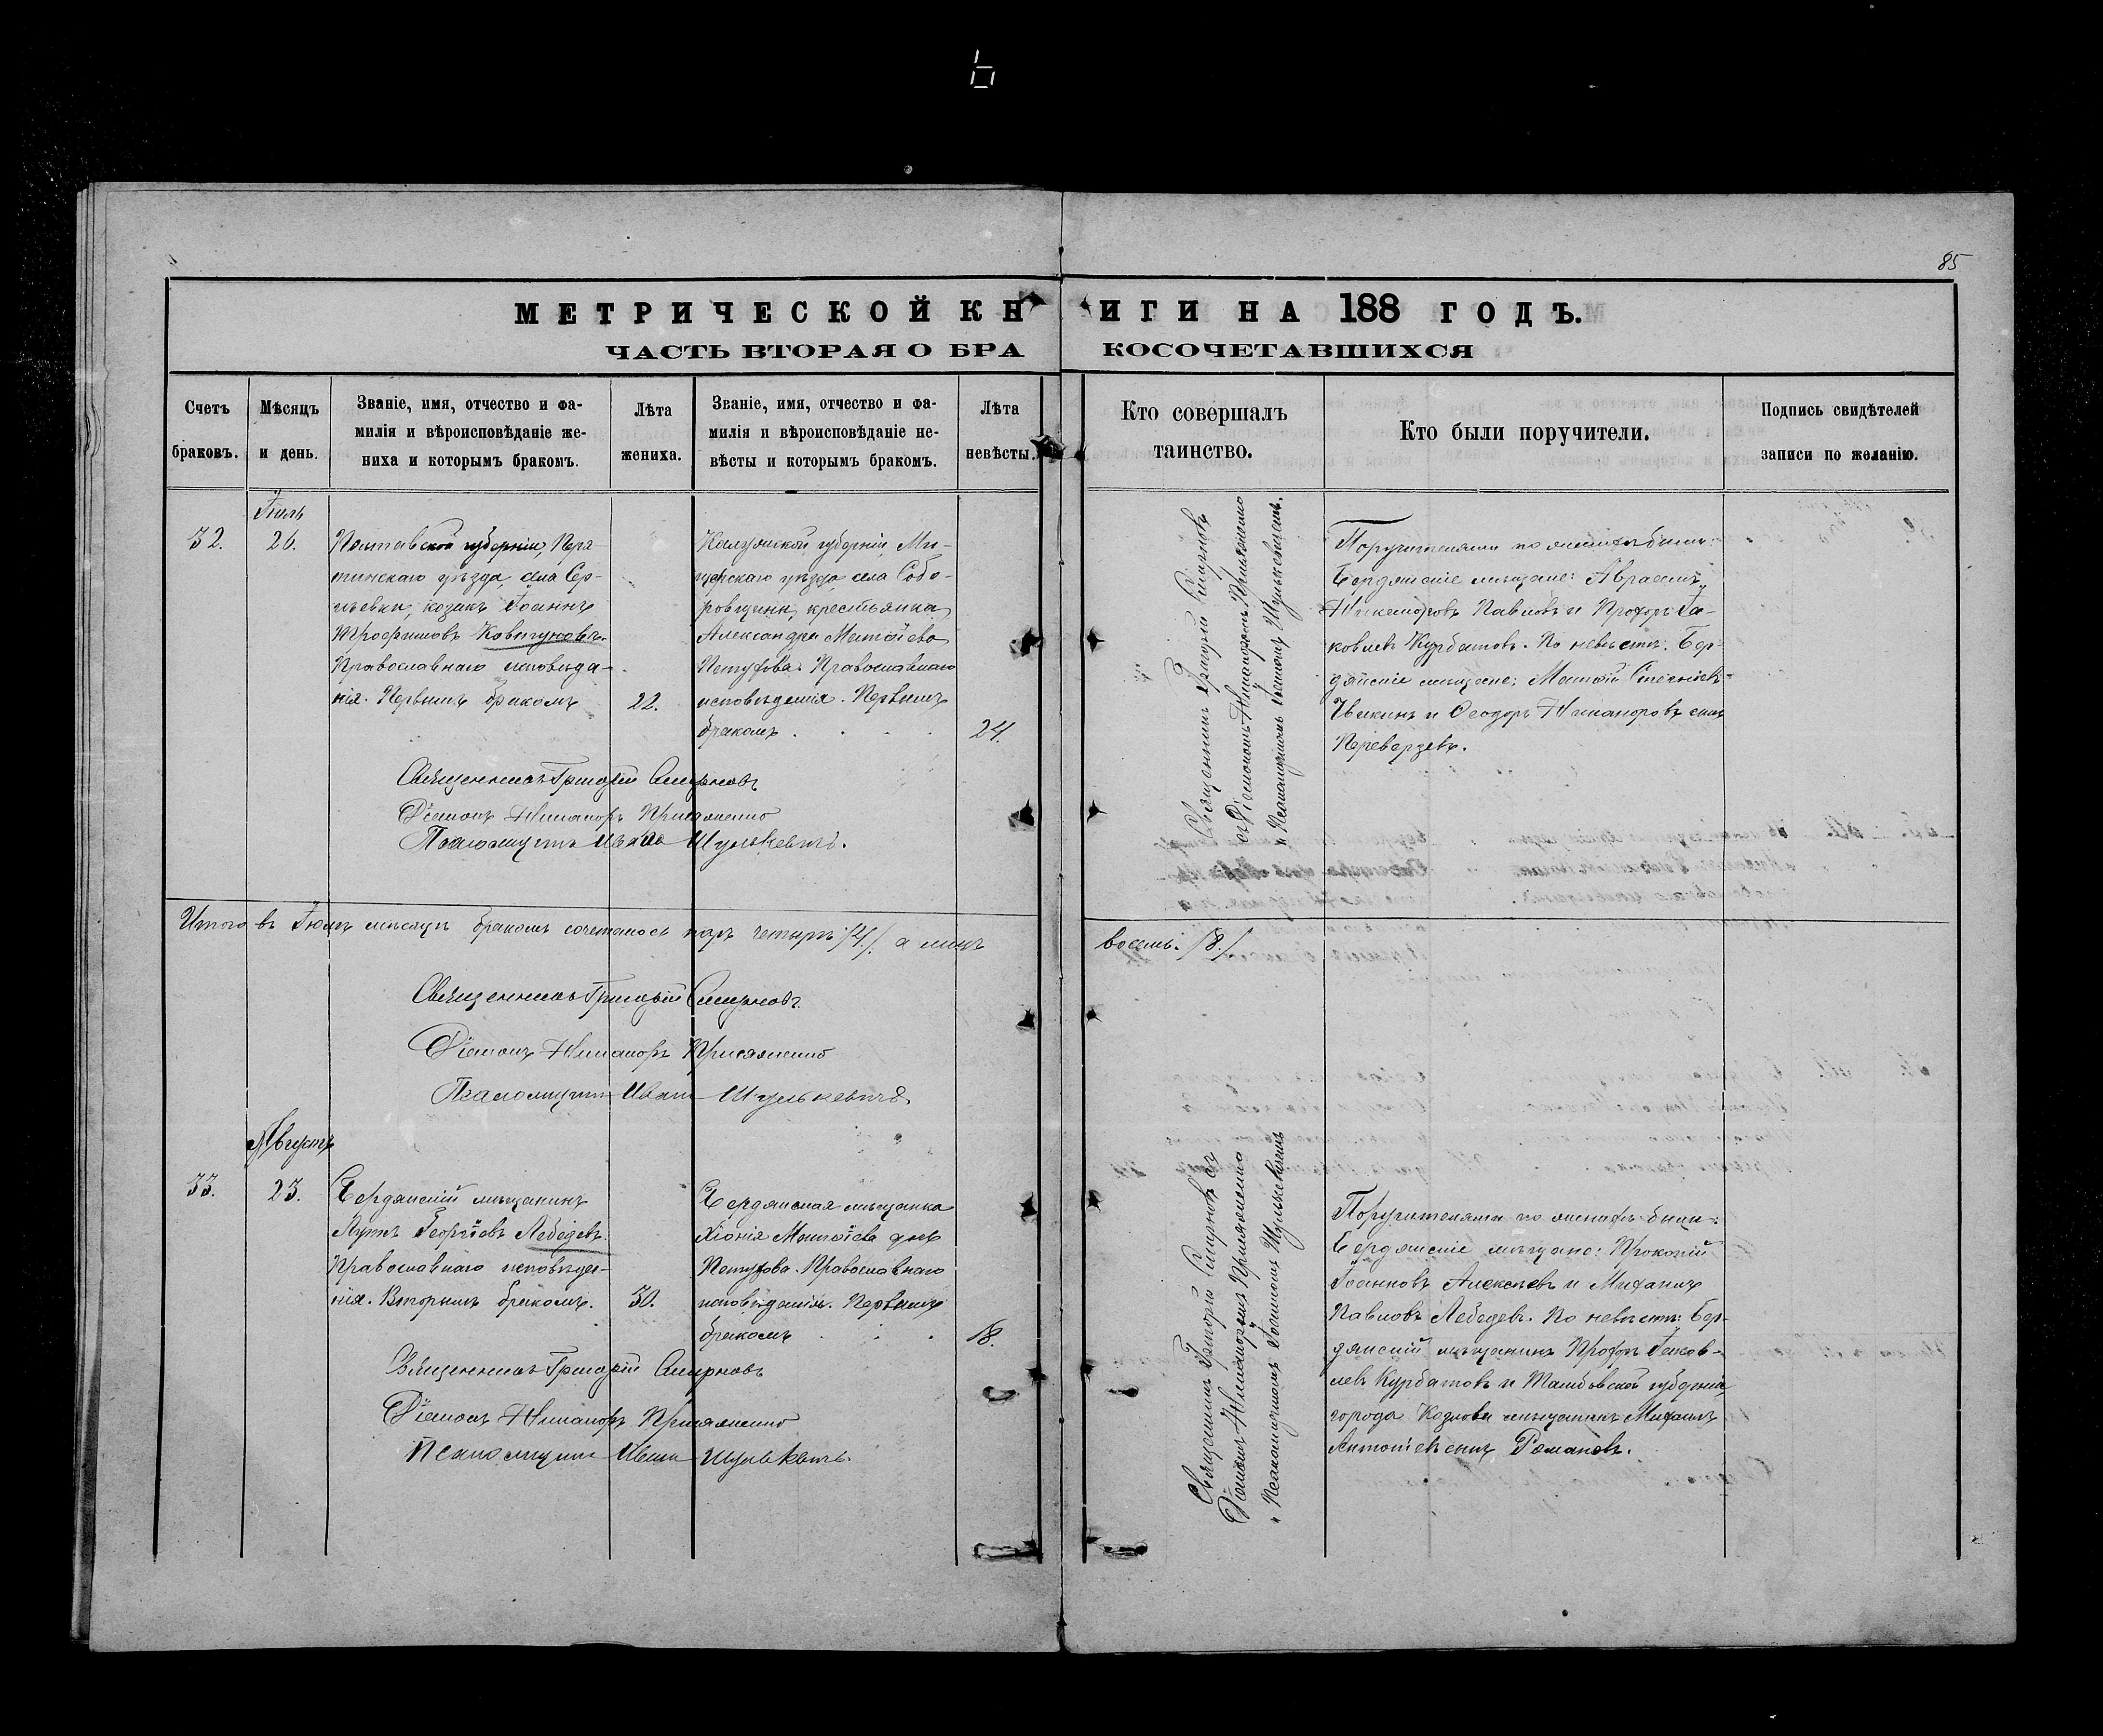 85
МЕТРИЧЕСКОЙ КНИГИ НА 188 ГОДЪ.
ЧАСТЬ ВТОРАЯ О БРАКОСОЧЕТАВШИХСЯ
Счетъ браковъ.
Мѣсяцъ и день.
Званіе, имя, отчество и фа-
милія и вѣроисповѣданіе же-
ниха и которымъ бракомъ.
Лѣта жениха.
Званіе, имя, отчество и фа-
милія и вѣроисповѣданіе не-
вѣсты и которымъ бракомъ.
Лѣта невѣсты.
Кто совершалъ
таинство.
Кто были поручители.
Подпись свидѣтелей
записи по желанію.
Іюль
32.
26.
Полтавской губерніи, Пиря-
тинскаго уѣзда села Сер-
гѣевки, козакъ Іоаннъ
Трофимовъ Ковтуновъ.
Православнаго исповѣда-
нія. Первымъ бракомъ
22.
Калужской губерніи Ми-
уѣзда села Собо-
ровщины, крестьянка
Александра Матѳіева
Петухова. Православнаго
исповѣданія. Первымъ
бракомъ
24.
Священникъ Григорій Смирновъ
съ Діакономъ Никаноромъ Присяженко
и Псаломщикомъ Іоанномъ Шулькевичемъ.
Поручителями по женихѣ были:
Бердянскіе мѣщане: Авраамъ
Никаноровъ Павловъ и Прохоръ Іа-
ковлевъ Курбатовъ. По невѣстѣ: Бер-
дянскіе мѣщане: Матѳій
и Ѳеодоръ Никаноровъ сынъ
Переверзевъ.
Священникъ Григорій Смирновъ
Діаконъ Никаноръ Присяженко
Псаломщикъ Иванъ Шулькевичъ.
Итого въ Іюлѣ мѣсяцѣ бракомъ сочеталось паръ четыре /4/. а лицъ восемь. /8./
Священникъ Григорій Смирновъ.
Діаконъ Никаноръ Присяженко
Псаломщикъ Иванъ Шулькевичъ.
Августъ
33.
23.
Бердянскій мѣщанинъ
Лукa Георгіевъ Лебедевъ.
Православнаго исповѣда-
нія. Вторымъ бракомъ.
30.
Бердянская мѣщанка
Хіонія Матѳіева дочь
Петухова. Православнаго
исповѣданія. Первымъ
бракомъ
18.
Священникъ Григорій Смирновъ съ
Діаконъ Никаноромъ Присяженко
и Псаломщикомъ Іоанномъ Шулькевичемъ
Поручителями по женихѣ были:
Бердянскіе мѣщане: Прокопій
Іоанновъ Алексѣевъ и Михаилъ
Павловъ Лебедевъ. По невѣстѣ: Бер-
дянскій мѣщанинъ Прохоръ Іаков-
левъ Курбатовъ и Тамбовской губерніи
города Козлова мѣщанинъ Михаилъ
Антоніевъ сынъ Романовъ.
Священникъ Григорій Смирновъ
Діаконъ Никаноръ Присяженко
Псаломщикъ Иванъ Шулькевичъ.